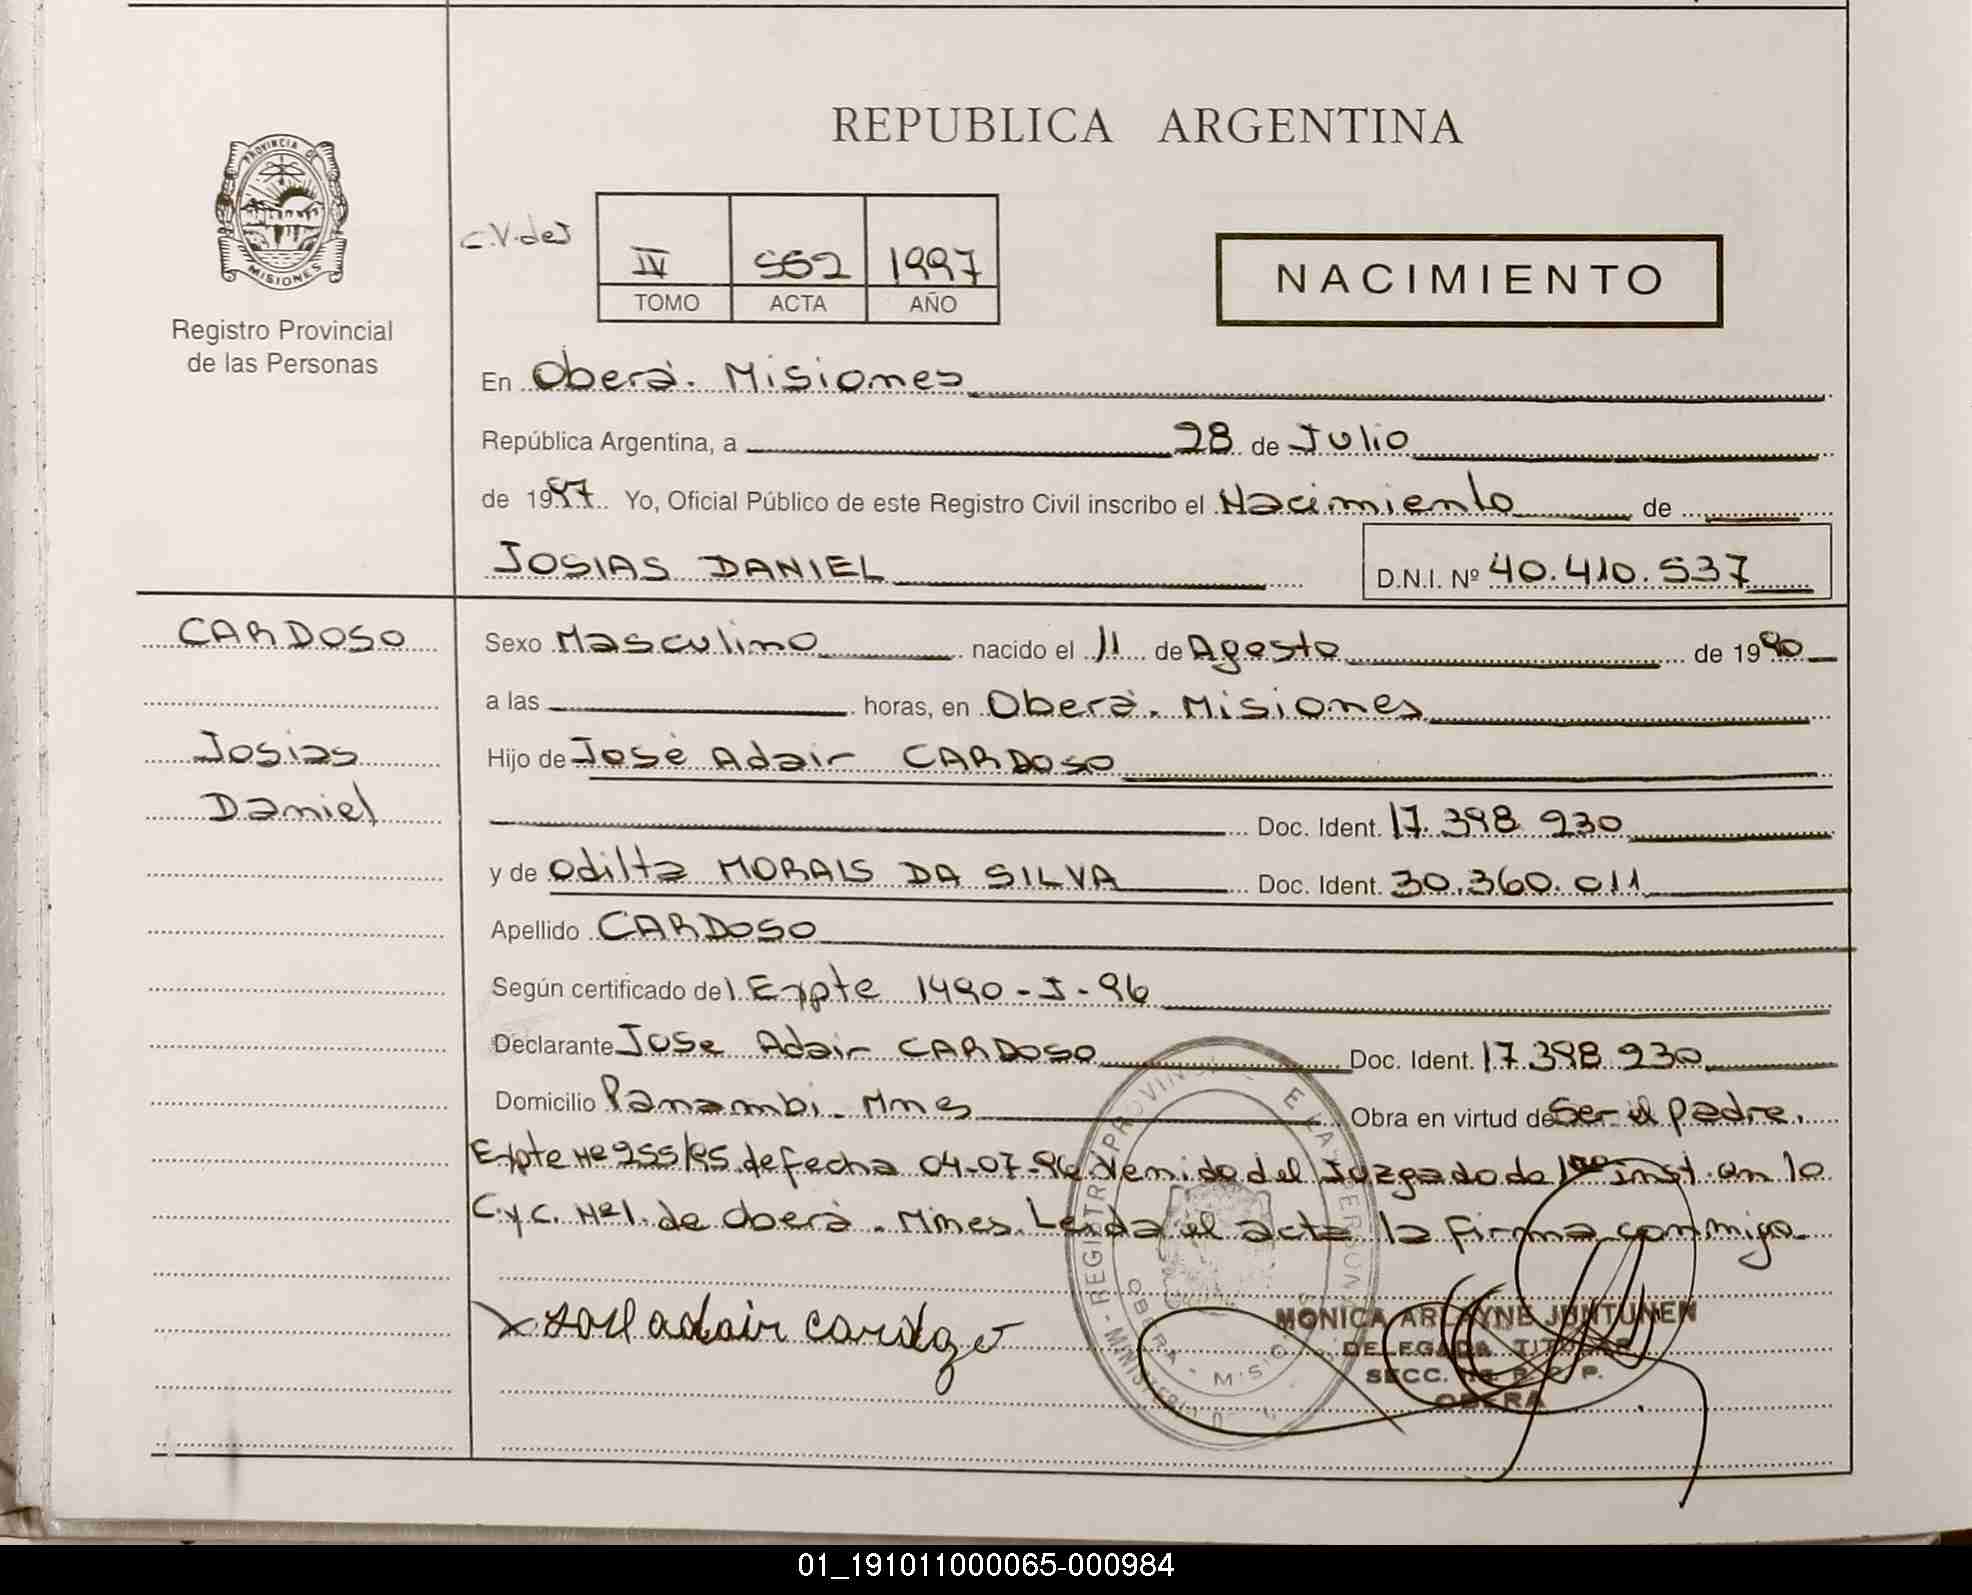 REPUBLICA ARGENTINA
PROVINCIA DE
MISIONES
Registro Provincial
de las Personas
C.V.deJ
IV 552 1997
TOMO ACTA AÑO
NACIMIENTO
En Oberá. Misiones
República Argentina, a 28 de Julio
de 1997. Yo, Oficial Público de este Registro Civil inscribo el Nacimiento de
JOSIAS DANIEL D.N.I. Nº 40.410.537
CARDOSO
Josias
Daniel
Sexo Masculino nacido el 11 de Agosto de 1990
a las horas, en Oberá. Misiones
Hijo de José Adair CARDOSO
Doc. Ident. 17.398.930
y de Odilta MORAIS DA SILVA Doc. Ident. 30.360.011
Apellido CARDOSO
Según certificado del Expte 1490-J-96
Declarante Jose Adair CARDOSO Doc. Ident. 17.398.930
Domicilio Panambi. Mnes Obra en virtud de Ser el padre.
Expte Nº 955/95 de fecha 04-07-96 Venido del Juzgado de 1ra Inst. en lo
C. y C. Nº1. de Oberá. Mnes. Leida el acta la firma conmigo.
MONICA ARLAYNE JUNTUNEN
DELEGADA TITULAR
SECC. R. P. P.
OBERA
01_191011000065-000984